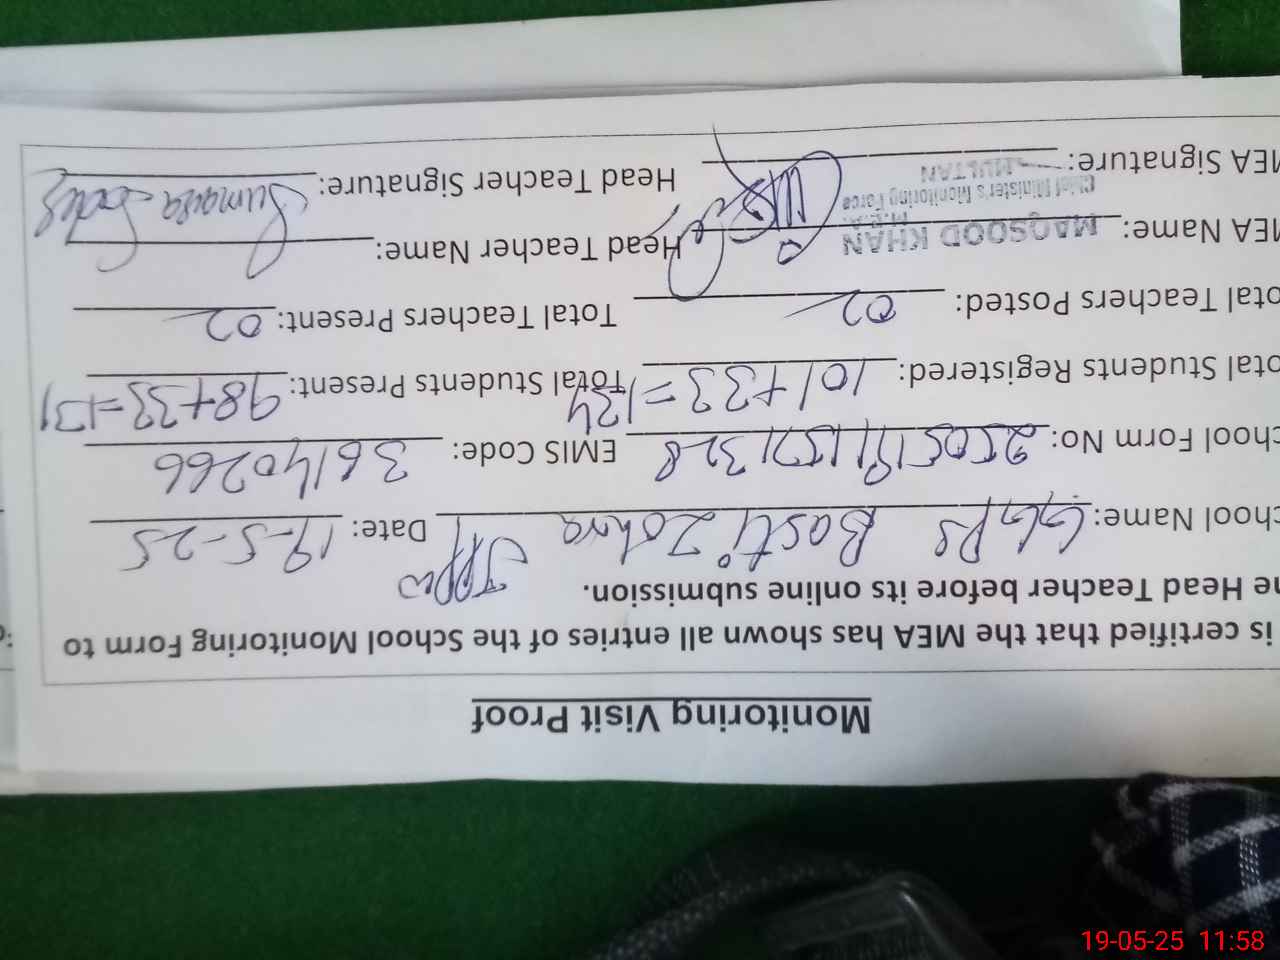 Monitoring Visit Proof
is certified that the MEA has shown all entries of the School Monitoring Form to
he Head Teacher before its online submission.
chool Name: GGPS Basti Zohra Date: 19-5-25
chool Form No: EMIS Code: 36140266
otal Students Registered: 101+33=134 Total Students Present: 98+33=131
otal Teachers Posted: 02 Total Teachers Present: 02
MEA Name: MAQSOOD KHAN Head Teacher Name:
M.E.A.
Chief Minister's Monitoring Force
MULTAN
MEA Signature: Head Teacher Signature: Sumaira
19-05-25 11:58